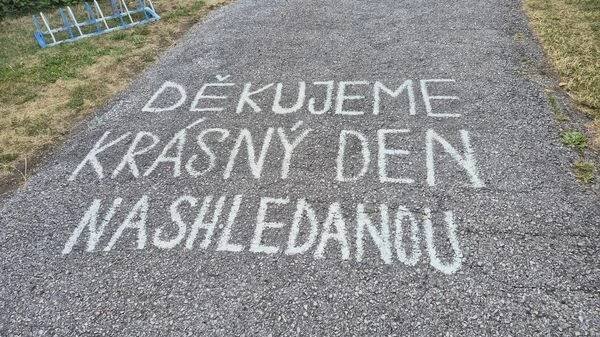 DĚKUJEME
KRÁSNÝ DEN
NASHLEDANOU